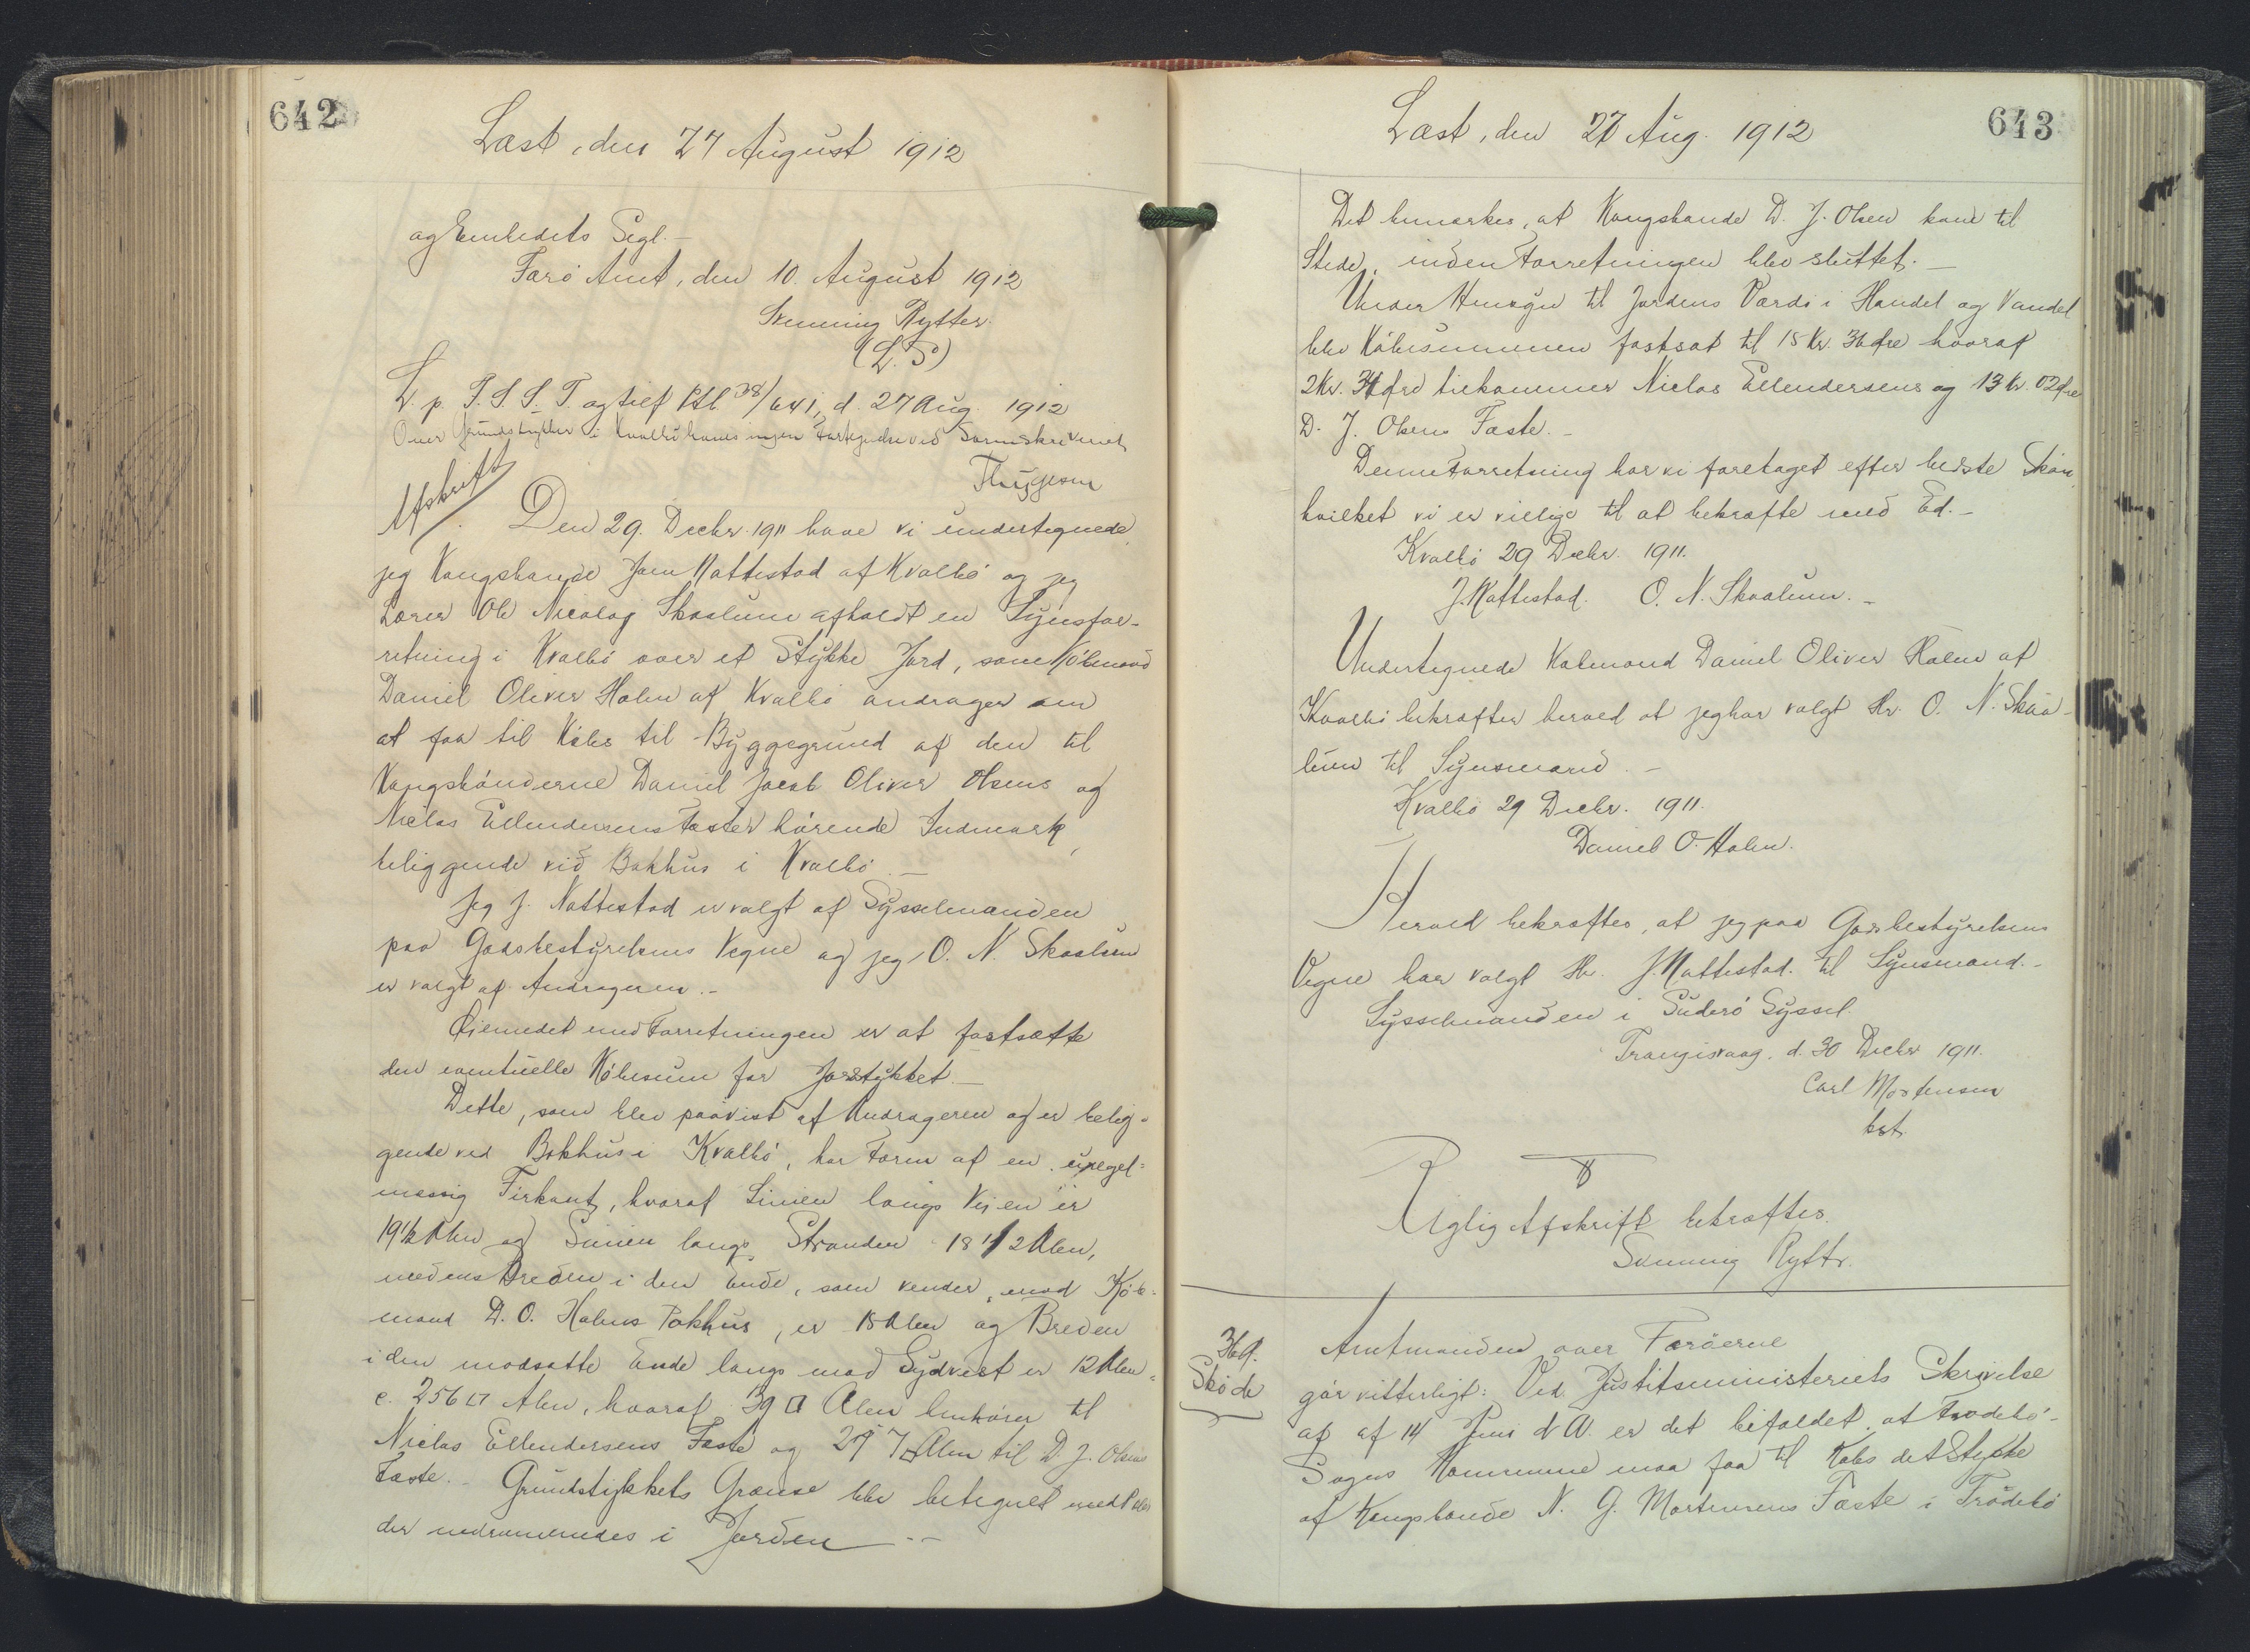 642
Læst, den 27 August 1912
og Embedets Segl. —
Færø Amt, den 10. August 1912
Svenning Rytter.
(L. S)
L. p. T. S. S. T. og tilf Ptl 38/641, d. 27 Aug. 1912
Over Grundstykker i Kvalbø haves ingen Partegndse ved Sorinskriveriet
Afskrift
Den 29. Decbr. 1911 have vi undertegnede,
jeg Kongsbonde Joen Nattestad af Kvalbø og jeg
Lærer Ole Nicolaj Skaalum afholdt en Synsfor-
retning i Kvalbø over et Stykke Jord, som Købmand
Daniel Oliver Holm af Kvalbø andrager om
at faa til Købs til Byggegrund af den til
Kongsbønderne Daniel Jacob Oliver Olsens og
Niclas Ellendersens Fæster hørende Indmark,
beliggende ved Bakhus i Kvalbø. —
Jeg J. Nattestad er valgt af Sysselmanden
paa Godsbestyrelsens Vegne og jeg O. N. Skaalum
er valgt af Andrageren. —
Øiemedet med Forretningen er at fastsætte
den eventuelle Købesum for Jordstykket. —
Dette, som blev paavist af Andrageren og er belig-
gende ved Bakhus i Kvalbø, har Form af en uregel=
mæssig Firkant, hvoraf Linien langs Vejen er
19 1/2 Alen og Linien langs Stranden 18 1/2 Alen,
medens Breden i den Ende, som vender mod Køb=
mand D. O. Holms Pakhus, er 15 Alen og Breden
i den modsatte Ende langs mod Sydvest er 12 Alen =
c. 256 □ Alen, hvoraf 39 □ Alen henhører til
Niclas Ellendersens Fæste og 217 □ Alen til D. J. Olsens
Fæste. — Grundstykkets Grænse blev betegnet med Pæle
der nedrammedes i Jorden — -
643
Læst, den 27 Aug. 1912
Det bemærkes, at Kongsbonde D. J. Olsen kom til
Stede, inden Forretningen blev sluttet. —
Under Hensyn til Jordens Værdi i Handel og Vandel
blev Købesummen fastsat til 15 Kr. 36 Øre hvoraf
2 Kr. 34 Øre tilkommer Niclas Ellendersens og 13 Kr. 02 Øre
D. J. Olsens Fæste. —
Denne Forretning har vi foretaget efter bedste Skøn,
hvilket vi er villige til at bekræfte med Ed. —
Kvalbø 29 Decbr. 1911.
J. Nattestad. O. N. Skaalum. —
Undertegnede Købmand Daniel Oliver Holm af
Kvalbø bekræfter herved at jeg har valgt Hr. O. N. Skaa-
lum til Synsmand. —
Kvalbø 29 Decbr. 1911.
Daniel O. Holm.
Herved bekræftes, at jeg paa Godsbestyrelsens
Vegne har valgt Hr. J. Nattestad. til Synsmand. —
Sysselmanden i Suderø Syssel.
Trangisvaag, d. 30 Decbr 1911.
Carl Mortensen
kst.
Rigtig Afskrift bekræftes.
Svenning Rytter.
369.
Skøde
Amtmanden over Færøerne
gør vitterligt: Ved Justitsministeriets Skrivelse
af af 14 Juni d. A. er det bifaldet, at Frodebø-
Sogns Kommune maa faa til Købs det Stykke
af Kongsbonde N. G. Mortensens Fæste i Frodebø